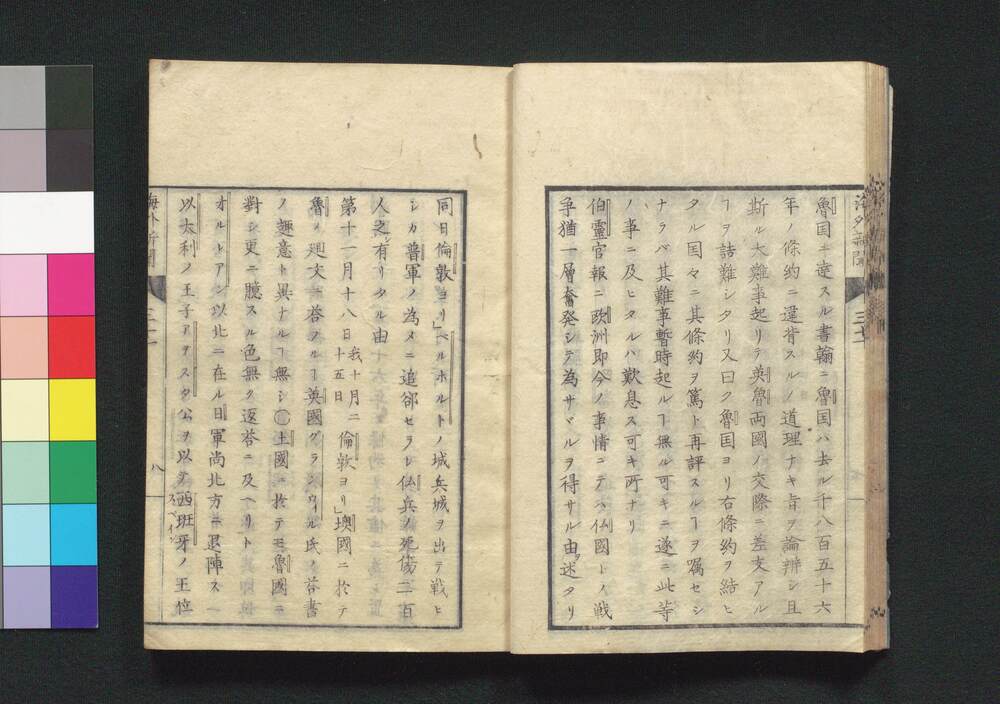 海外新聞 三十一
魯国ニ達スル書翰ニ魯国ハ去ル千八百五十六
年ノ條約ニ違背スルノ道理ナキ旨ヲ論辨シ且
斯ル大難事起リテ英魯両國ノ交際ニ差支アル
ヿヲ詰難シタリ又曰ク魯国ヨリ右條約ヲ結ヒ
タル国々ニ其條約ヲ篤ト再評スルヿヲ嘱セシ
ナラバ其難事暫時起ルヿ無ル可キニ遂ニ此等
ノ事ニ及ヒタルハ歎息ス可キ所ナリ
伯靈官報ニ欧洲即今ノ事情ニテハ仏國トノ戦
争猶一層奮発シテ為サヾルヲ得サル由ヲ述タリ
同日倫敦ヨリ」ベルホルトノ城兵城ヲ出テ戦ヒ
シカ普軍ノ為メニ追郤セラレ仏兵ノ死傷二百
人之有リタル由
第十一月十八日我十月二十五日倫敦ヨリ」墺國ニ於テ
魯ノ廻文ニ荅フルヿ英國グランウィル氏ノ荅書
ノ趣意ト異ナルヿ無シ〇土國ニ於テモ魯國ニ
對シ更ニ臆スル色無ク返荅ニ及ヘリト
オルレアン以北ニ在ル日軍尚北方ニ退陣ス
以太利ノ王子アヲスタ公ヲ以テ西班牙ノ王位
スペイン
海外新聞 三十一
八